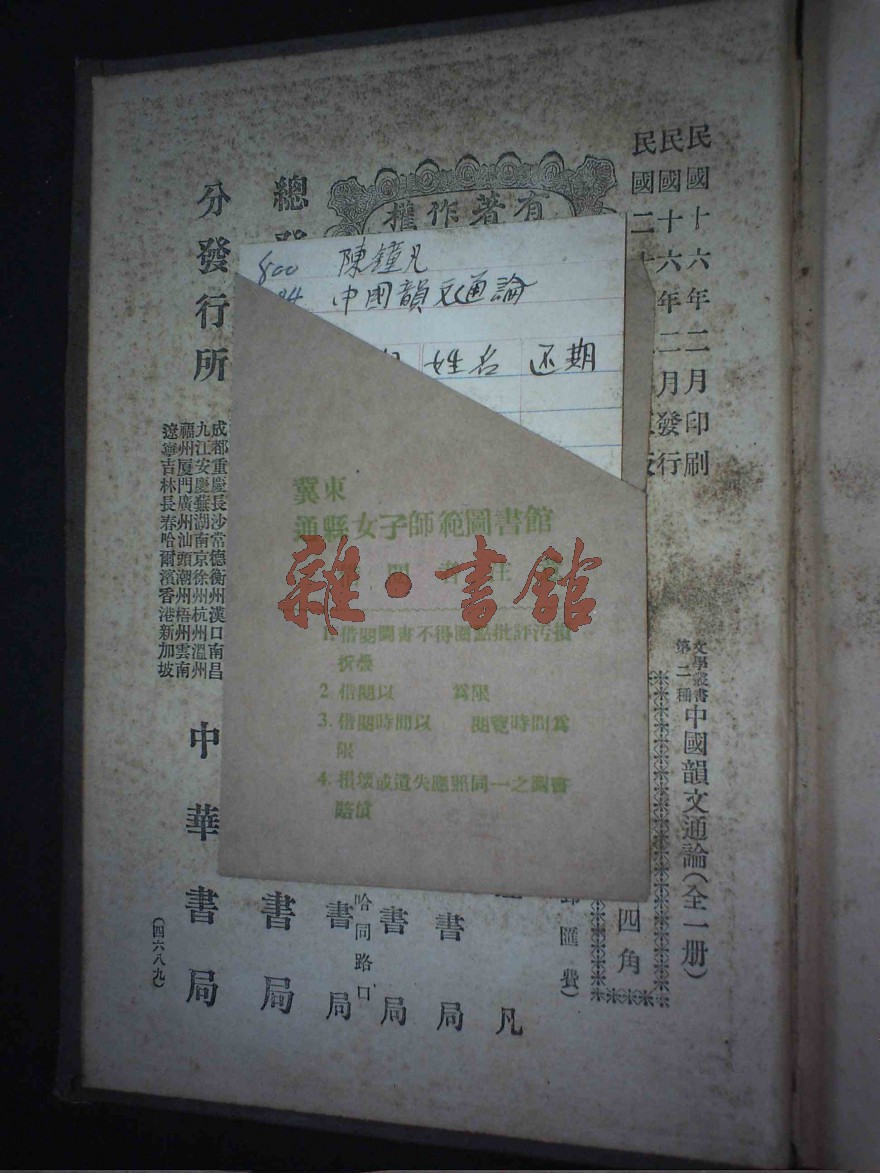 民國十六年二月印刷
民國十六年二月發行
民國二十
有著作權
文學叢書
第二種
中國韻文通論(全一册)
四角
郵匯費)
凡
書局
書局
哈同路口
書局
總發
書局
分發行所
成都重慶長沙常德衡州漢口南昌
九江安慶蕪湖南京徐州杭州溫州
福州厦門廣州汕頭潮州梧州雲南
遼寧吉林長春哈爾濱香港新加坡
中華書局
(四六八九)
800 陳鐘凡
中國韻文通論
姓名 还期
冀東
通縣女子師範圖書館
雜·書館
1. 借閱圖書不得圈點批評污損
折疊
2. 借閱以 爲限
3. 借閱時間以 閱覽時間爲
限
4. 損壞或遺失應照同一之圖書
賠償